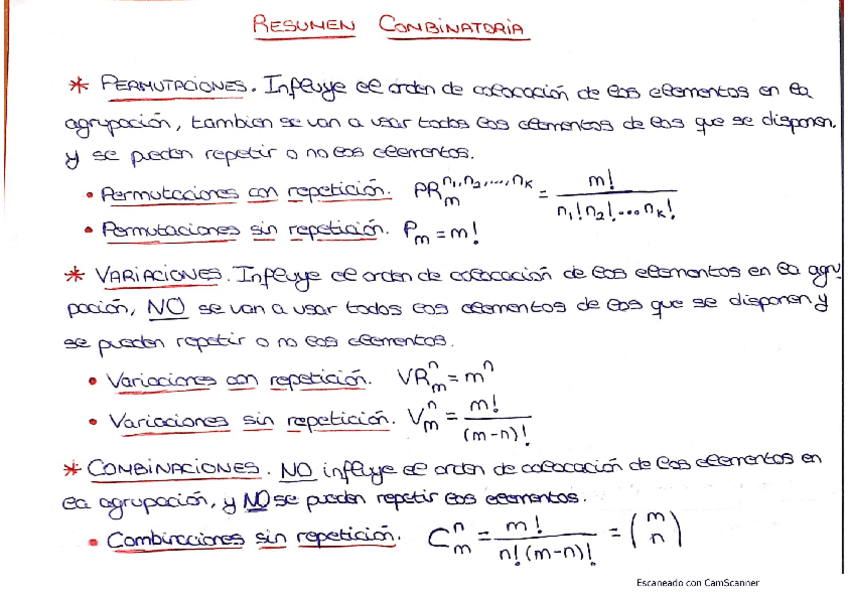 RESUMEN COMBINATORIA
* PERMUTACIONES. Influye el orden de colocación de los elementos en la
agrupación, tambien se van a usar todos los elementos de los que se disponen,
y se pueden repetir o no los elementos.
• Permutaciones con repetición. PR_m^{n₁,n₂,...,n_k} = m! / (n₁! n₂! ... n_k!)
• Permutaciones sin repetición. P_m = m!
* VARIACIONES. Influye el orden de colocación de los elementos en la agru
pación, NO se van a usar todos los elementos de los que se disponen y
se pueden repetir o no los elementos.
• Variaciones con repetición. VR_m^n = m^n
• Variaciones sin repetición. V_m^n = m! / (m-n)!
* COMBINACIONES. NO influye el orden de colocación de los elementos en
la agrupación, y NO se pueden repetir los elementos.
• Combinaciones sin repetición. C_m^n = m! / (n! (m-n)!) = (m n)
Escaneado con CamScanner